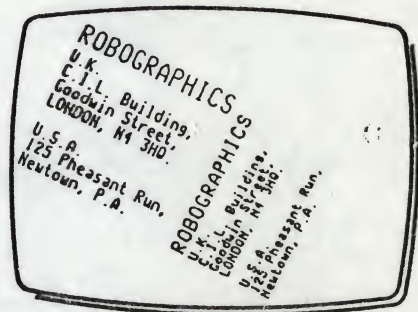 ROBOGRAPHICS
U.K.
C.I.L. Building,
Goodwin Street,
LONDON, N4 3HQ.
U.S.A.
125 Pheasant Run,
Newtown, P.A.
ROBOGRAPHICS
U.K.
C.I.L. Building,
Goodwin Street,
LONDON, N4 3HQ.
U.S.A.
125 Pheasant Run,
Newtown, P.A.